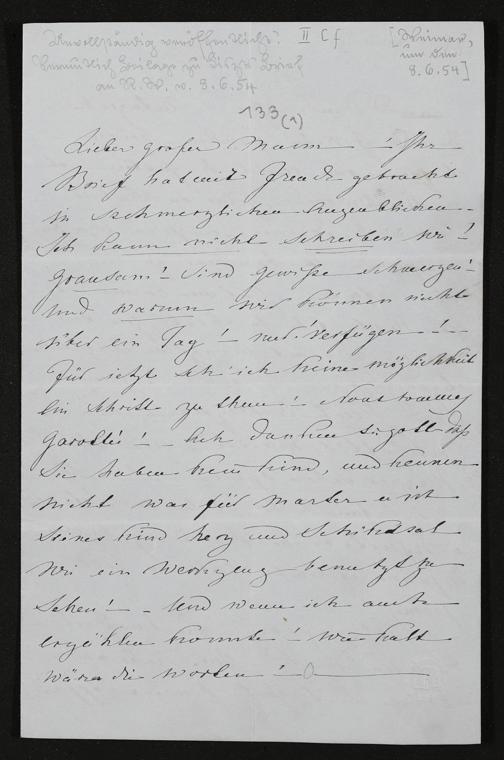 Unvollständig veröffentlicht! II Cf [Weimar,
um den
Vermutlich Beilage zu Liszts Brief 8.6.54]
an R.W. v. 8.6.54
133(1)
Lieber großer Mann! Ihr
Brief hat mit Freude gebracht
in schmerzlichen Augenblicken –
Ich kann nicht schreiben wie!
grausam! Sind gewiße schmerzen!
Und warum wir können nicht
über ein Tag! nur verfügen! –
Für jetzt seh' ich keine möglichkeit
ein schritt zu thun! Nous sommes
Garottés! – Ach danken sie gott daß
Sie haben kein kind, und kennen
nicht was für marter es ist
seines kind herz und Schiksal
wie ein Werkzeug benutzt zu
Sehen! – Und wenn ich auch
erzählen konnte! wie kalt
wären die worten!